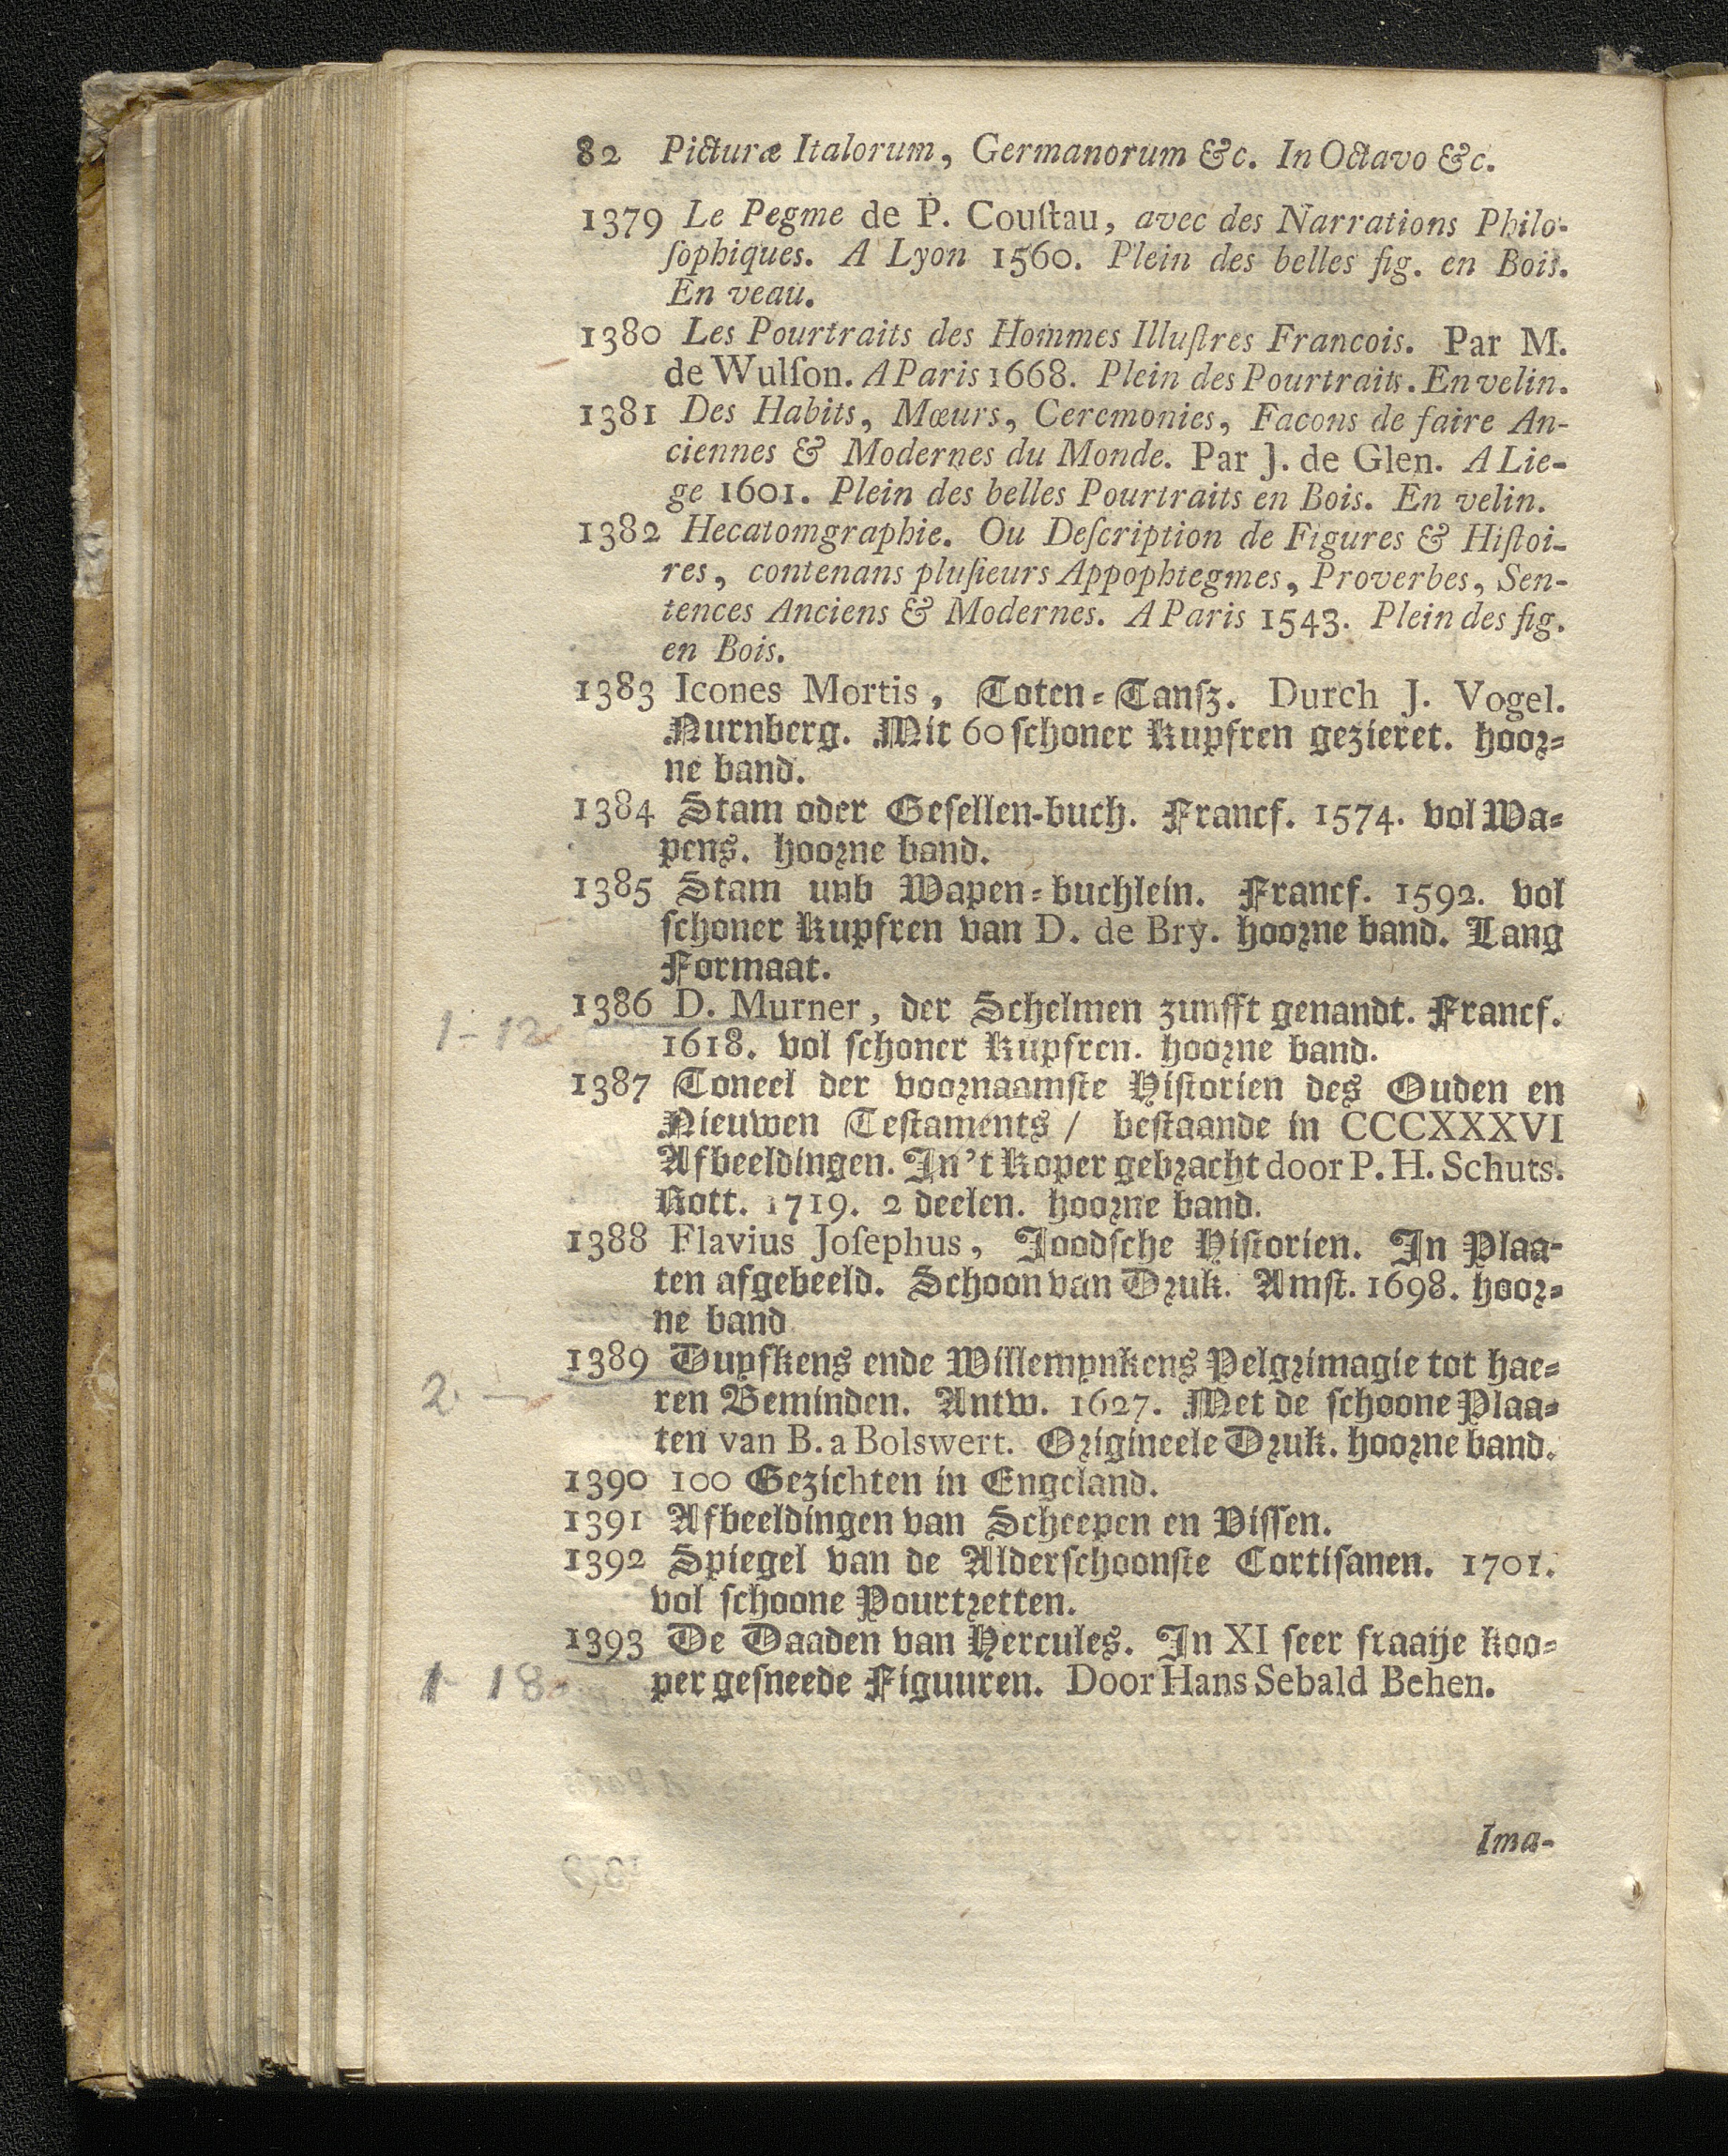 82 Picturæ Italorum, Germanorum &c. In Octavo &c.
1379 Le Pegme de P. Couſtau, avec des Narrations Philo-
ſophiques. A Lyon 1560. Plein des belles fig. en Bois.
En veau.
1380 Les Pourtraits des Hommes Illuſtres Francois. Par M.
de Wulſon. A Paris 1668. Plein des Pourtraits. En velin.
1381 Des Habits, Mœurs, Ceremonies, Facons de faire An-
ciennes & Modernes du Monde. Par J. de Glen. A Lie-
ge 1601. Plein des belles Pourtraits en Bois. En velin.
1382 Hecatomgraphie. Ou Deſcription de Figures & Hiſtoi-
res, contenans pluſieurs Appophtegmes, Proverbes, Sen-
tences Anciens & Modernes. A Paris 1543. Plein des fig.
en Bois.
1383 Icones Mortis, Toten-Tanſz. Durch J. Vogel.
Nurnberg. Mit 60 ſchoner Kupfren gezieret. hoor-
ne band.
1384 Stam oder Geſellen-buch. Francf. 1574. vol Wa-
pens. hoorne band.
1385 Stam unb Wapen-buchlein. Francf. 1592. vol
ſchoner Kupfren van D. de Bry. hoorne band. Lang
Formaat.
1386 D. Murner, der Schelmen zunfft genandt. Francf.
1-12
1618. vol ſchoner Kupfren. hoorne band.
1387 Toneel der voornaamſte Hiſtorien des Ouden en
Nieuwen Teſtaments / beſtaande in CCCXXXVI
Afbeeldingen. In 't Koper gebracht door P. H. Schuts.
Rott. 1719. 2 deelen. hoorne band.
1388 Flavius Joſephus, Joodſche Hiſtorien. In Plaa-
ten afgebeeld. Schoon van Druk. Amſt. 1698. hoor-
ne band
1389 Duyfkens ende Willemynkens Pelgrimagie tot hae-
2 -
ren Beminden. Antw. 1627. Met de ſchoone Plaa-
ten van B. a Bolswert. Origineele Druk. hoorne band.
1390 100 Gezichten in Engeland.
1391 Afbeeldingen van Scheepen en Viſſen.
1392 Spiegel van de Alderſchoonſte Cortiſanen. 1701.
vol ſchoone Pourtretten.
1393 De Daaden van Hercules. In XI ſeer fraaije koo-
1-18
per geſneede Figuuren. Door Hans Sebald Behen.
Ima-